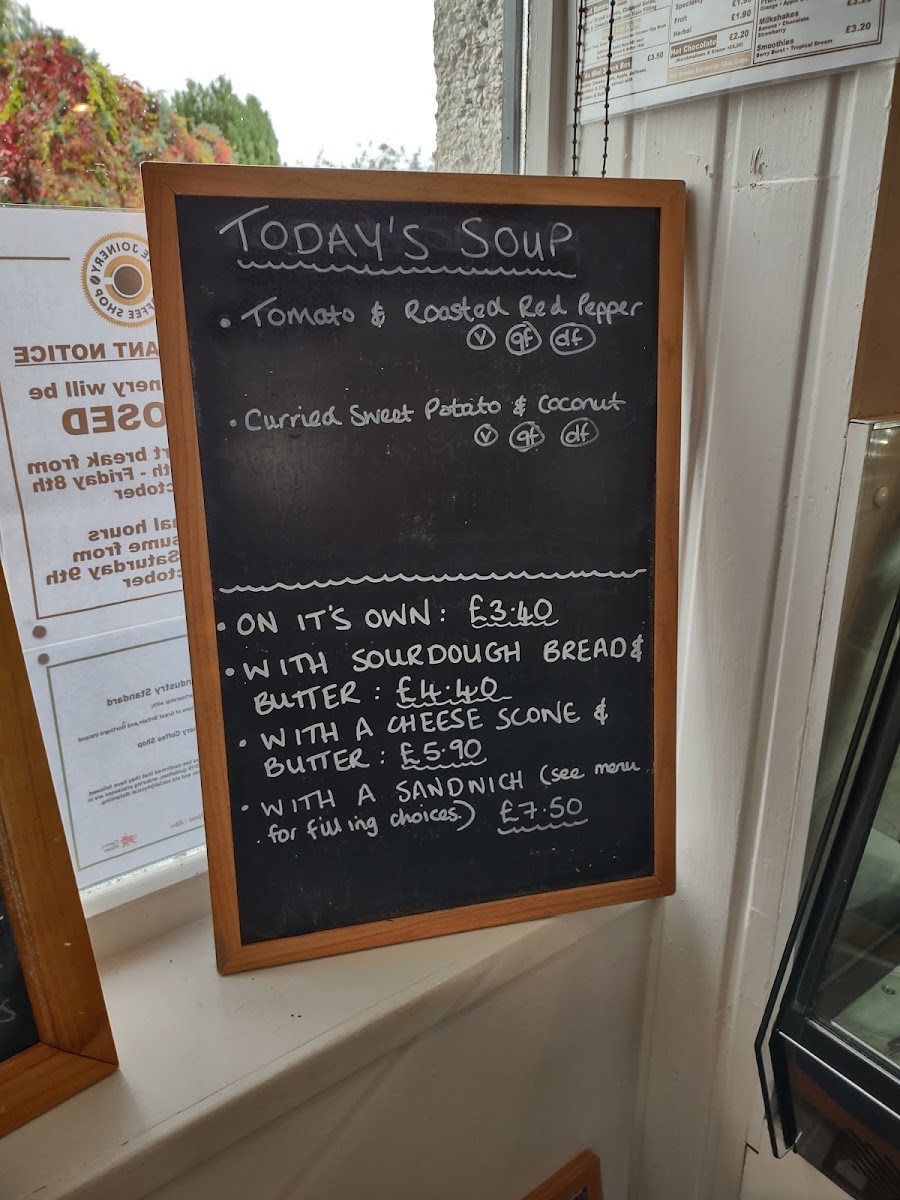 TODAY'S SOUP
• Tomato & Roasted Red Pepper
v gf df
• Curried Sweet Potato & Coconut
v gf df
• ON IT'S OWN: £3.40
• WITH SOURDOUGH BREAD &
BUTTER: £4.40
• WITH A CHEESE SCONE &
BUTTER: £5.90
• WITH A SANDWICH (see menu
for filling choices.) £7.50
Speciality £1.90
Fruit £1.90
Herbal £2.20
Hot Chocolate
£3.50
Milkshakes £3.20
Banana • Chocolate
Strawberry
Smoothies
Berry Burst • Tropical Dream
JOINERY
SHOP
ANT NOTICE
nery will be
OSED
rt break from
th - Friday 8th
ctober
al hours
sume from
Saturday 9th
ctober
ndustry Standard
ns of Great Britain and Northern Ireland
ery Coffee Shop